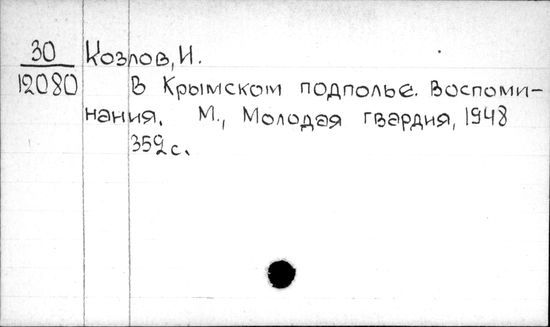 30
12080
Козлов, И.
В Крымском подполье. Воспоми-
нания. М., Молодая гвардия, 1948
352 с.